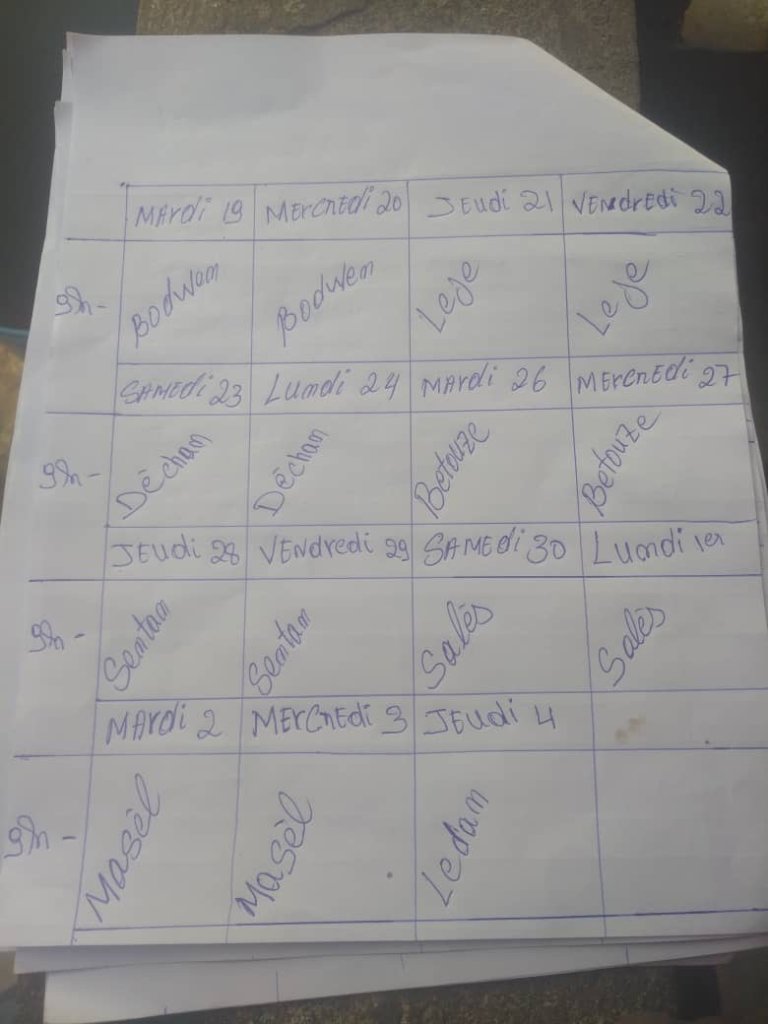 MARdi 19 MERCREdi 20 JEUdi 21 VENdREdi 22
9h- Bodwem Bodwem Leje Leje
SAMEdi 23 LUMdi 24 MARdi 26 MERCREdi 27
9h- Décham Décham Betouze Betouze
JEUdi 28 VENdREdi 29 SAMEdi 30 LUmdi 1er
9h- Semtam Semtam Salès Salès
MARdi 2 MERCREdi 3 JEUdi 4
9h- Masèl Masèl Ledam